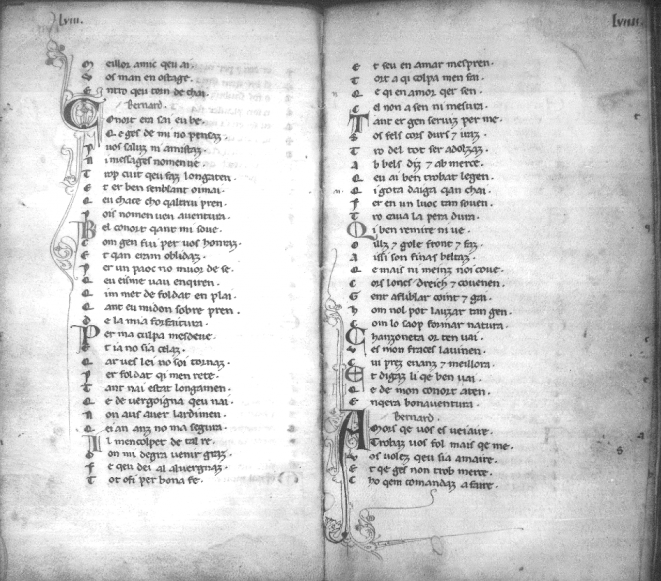 Lviii.
M eillor amic qeu ai.
V os man en ostage.
E ntro qeu torn de chai.
Bernard.
C Onort era sai eu be.
Q e ges de mi no pensaz.
P uos saluz ni amistaz.
N i messages nomen ue.
T rop cuit qeu faz lonc aten.
E t er ben senblant oimai.
Q eu chace cho qaltrui pren.
P ois nomen uen auentura.
B el conort qant mi soue.
C om gen fui per uos honraz.
E t qan eram oblidaz.
P er un paoc no muor de se.
Q eu eisme uau enqiren.
Q im met de foldat en plai.
Q ant eu midon sobre pren.
D e la mia forfaitura.
P er ma colpa mesdeue.
E t ia no sia celaz.
Q ar ues lei no soi tornaz.
P er foldat qi men rete.
T ant nai estat longamen.
Q e de uergoigna qeu nai.
N on aus auer lardimen.
Q ei an anz no ma segura.
I l mencolpet de tal re.
D on mi degra uenir graz.
F e qeu dei al aluergnaz.
T ot o fi per bona fe.
Lviiii.
E t seu en amar mespren.
T ort a qi colpa men fai.
Q e qi en amor qer sen.
C el non a sen ni mesura.
T ant er gen seruiz per me.
S os fels cors durs & iraz.
T ro del tot ser adolzaz.
A b bels diz & ab merce.
Q eu ai ben trobat legen.
Q i gota daiga qan chai.
F er en un luoc tan souen.
T ro caua la pera dura.
Q i ben remire ni ue.
O ilz & gole front & faz.
A isi son finas beltaz.
Q e mais ni meinz noi coue.
C ors loncs dreich & couenen.
G ent aflublar coint & gai.
H om nol pot lauzar tan gen.
C om lo saop formar natura.
C hanzoneta or ten uai.
V es mon frances lauinen.
C ui prez enanz & meillora.
E t digaz li qe ben uai.
Q e de mon conort aten.
E nqera bonauentura.
Bernard.
A Mors qe uos es ueiaire.
T robaz uos fol mais qe me.
V os volez qeu sia amaire.
E t qe ges non trob merce.
C ho qem comandaz a faire.